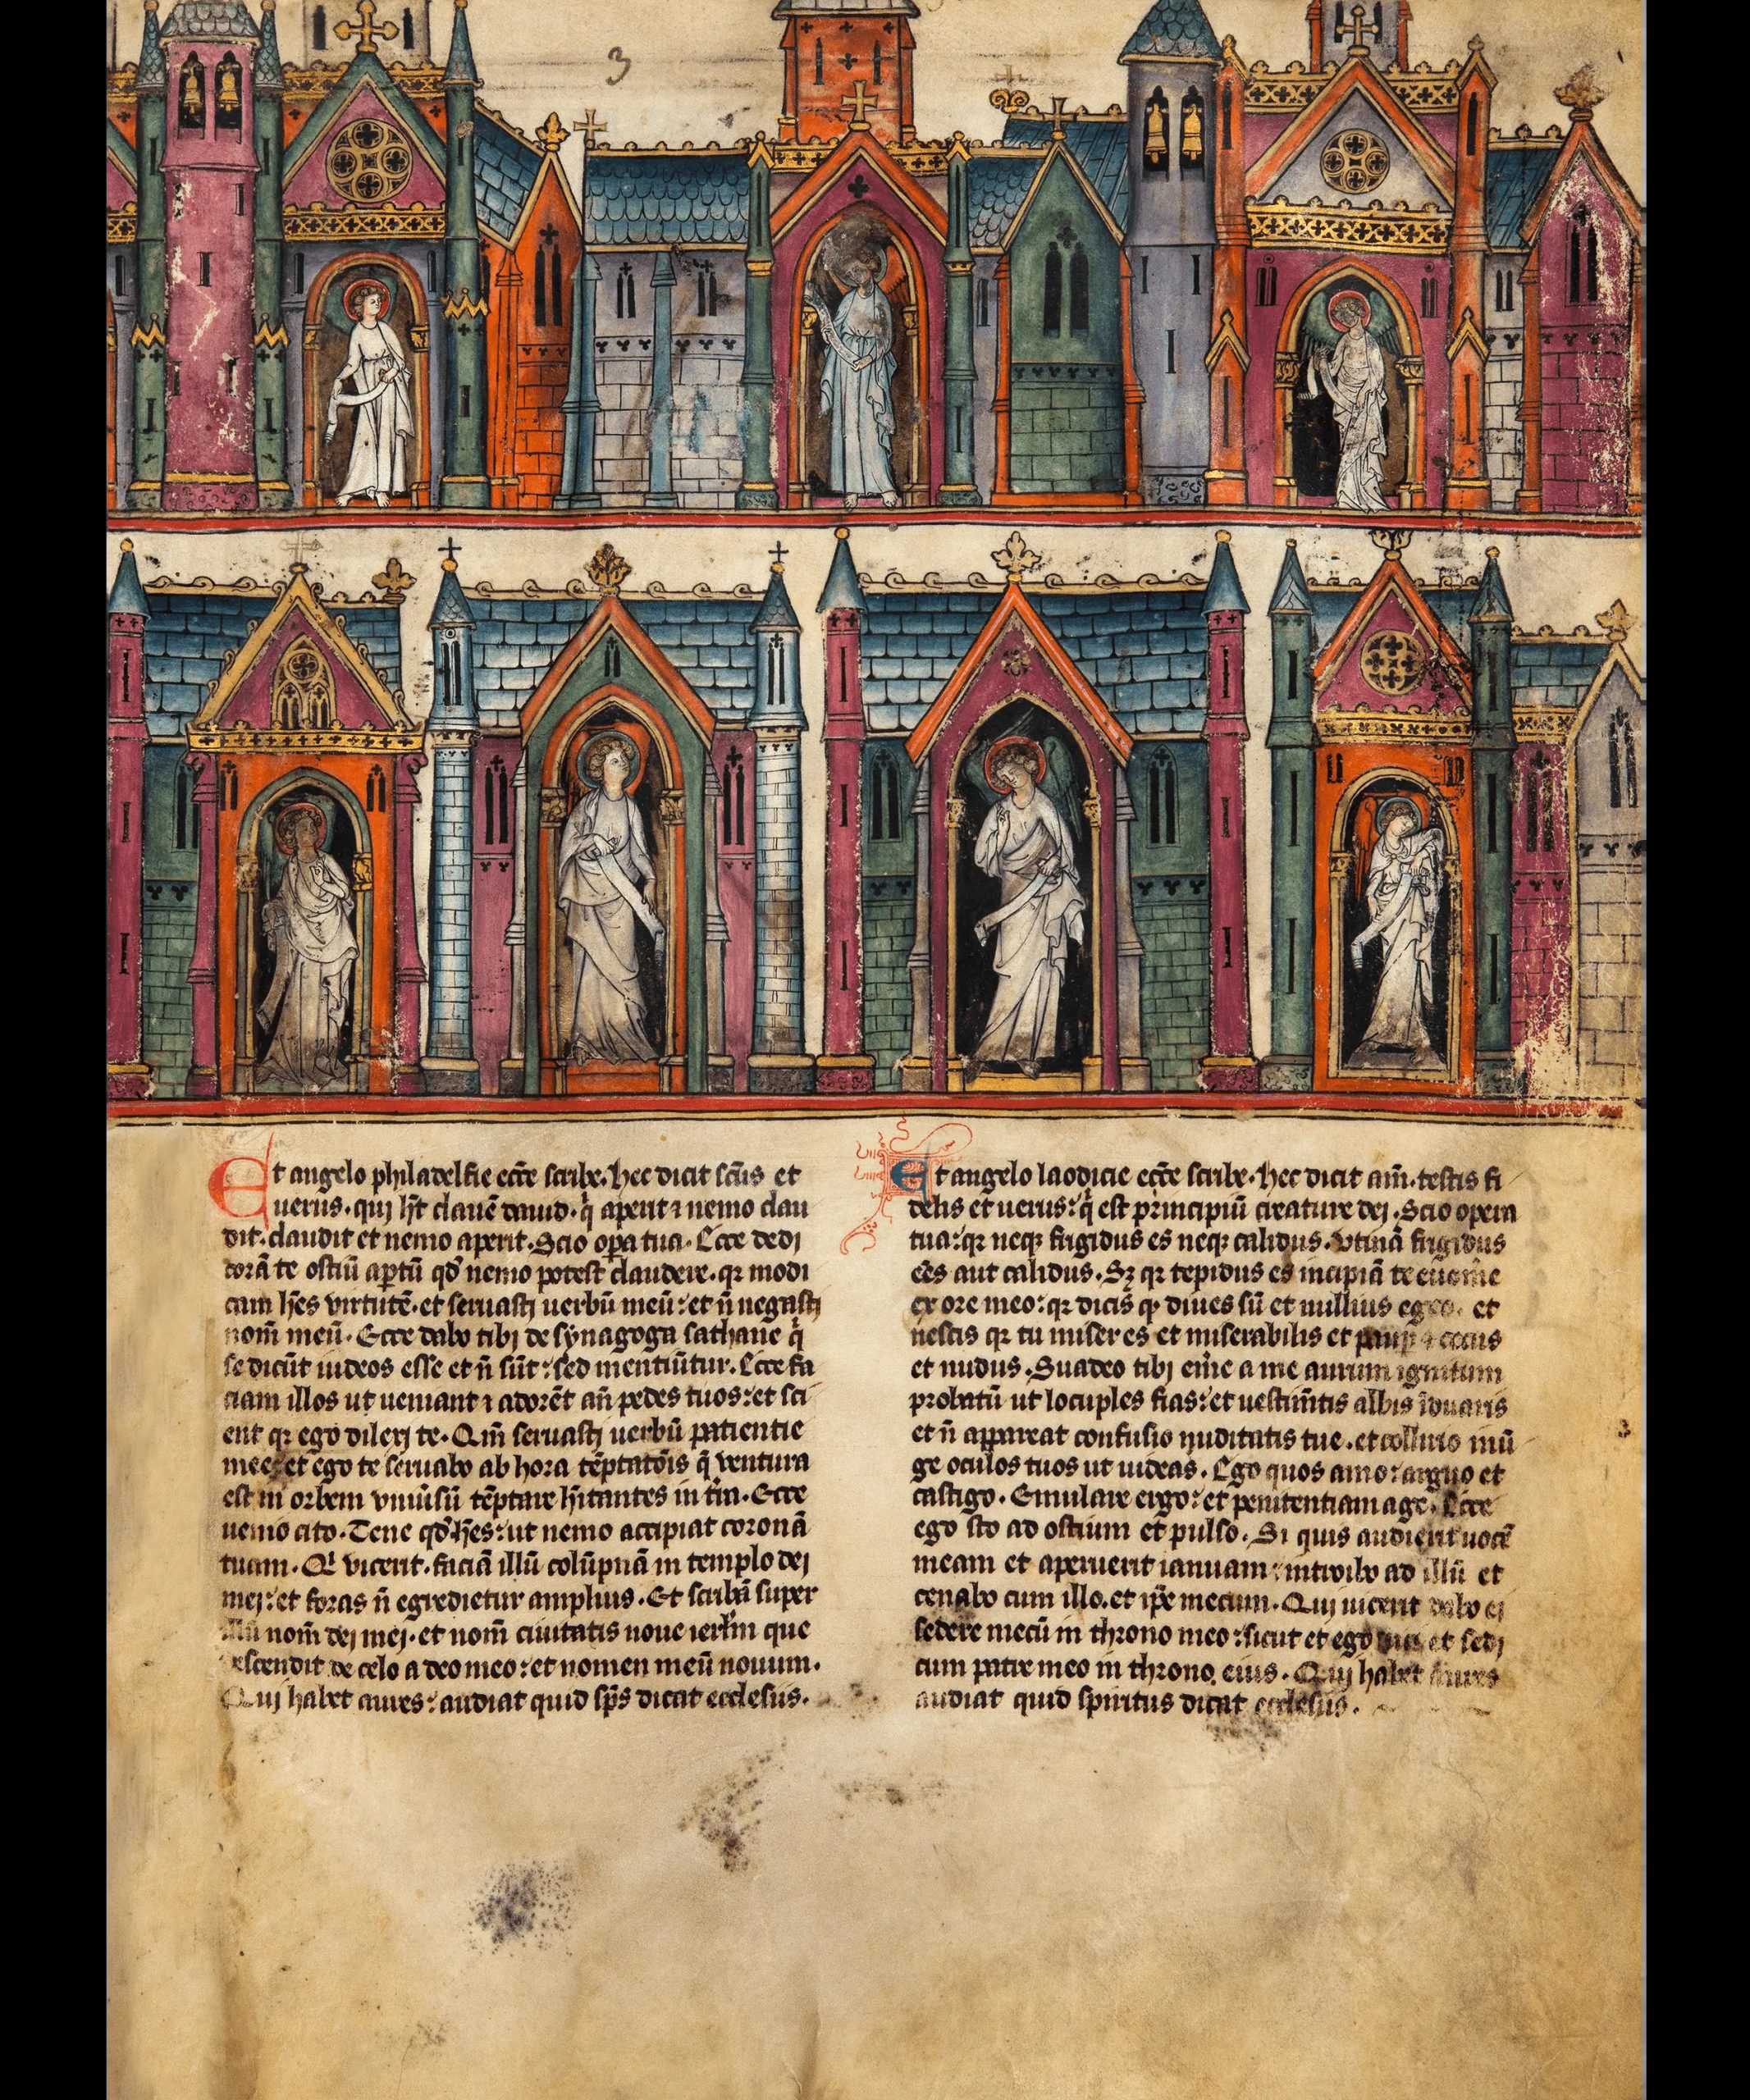 3
Et angelo philadelfie eccͨe scribe. hec dicit scūs et
uerus. qui h̄t clauē dauid. q̇ aperit ⁊ nemo clau
dit. claudit et nemo aperit. Scio opera tua. Ecce dedj
corā te ostiū aptū qd̄ nemo potest claudere. qꝛ modi
cam hēs virtutē. et seruastj uerbū meū: et n̄ negastj
nom̄ meū. Ecce dabo tibj de synagoga sathane q̇
se dicūt iudeos esse et n̄ sūt: sed mentiūtur. Ecce fa
ciam illos ut ueniant ⁊ adorēt an̄ pedes tuos: et sci
ent qꝛ ego dilexj te. Qm̄ seruastj uerbū patientie
mee: et ego te seruabo ab hora tēptatōis q̄ ventura
est in orbem vniūsū tēptare hītantes in t̄ra. Ecce
uenio cito. Tene qd̄ hēs: ut nemo accipiat coronā
tuam. Qͥ vicerit. faciā illū colūpnā in templo dej
mej: et foras n̄ egredietur amplius. Et scribā super
illū nom̄ dej mej. et nom̄ ciuitatis noue ierl̄m que
descendit de celo a deo meo: et nomen meū nouum.
Quj habet aures: audiat quid sp̄s dicat ecclesiis.
Et angelo laodicie eccͨe scribe. hec dicit am̄. testis fi
delis et uerus: q̇ est principiū creature dej. Scio opera
tua: qꝛ neqꝫ frigidus es neqꝫ calidus. vtinā frigidus
eēs aut calidus. Sꝫ qꝛ tepidus es incipiā te euome
ex ore meo: qꝛ dicis q̇ diues sū et nullius egeo. et
nescis qꝛ tu miser es et miserabilis et paup ⁊ cecus
et nudus. Suadeo tibj em̄e a me aurum ignitum
probatū ut locuples fias: et uestim̄tis albis īduaris
et n̄ appareat confusio nuditatis tue. et collirio inū
ge oculos tuos ut uideas. Ego quos amo: arguo et
castigo. Emulare ergo: et penitentiam age. Ecce
ego sto ad ostium et pulso. Si quis audierit uocē
meam et aperuerit ianuam: intrabo ad illū et
cenabo cum illo. et ip̄e mecum. Quj uicerit dabo ej
sedere mecū in throno meo: sicut et ego uici et sedj
cum patre meo in throno eius. Quj habet aures
audiat quid spiritus dicat ecclesiis.